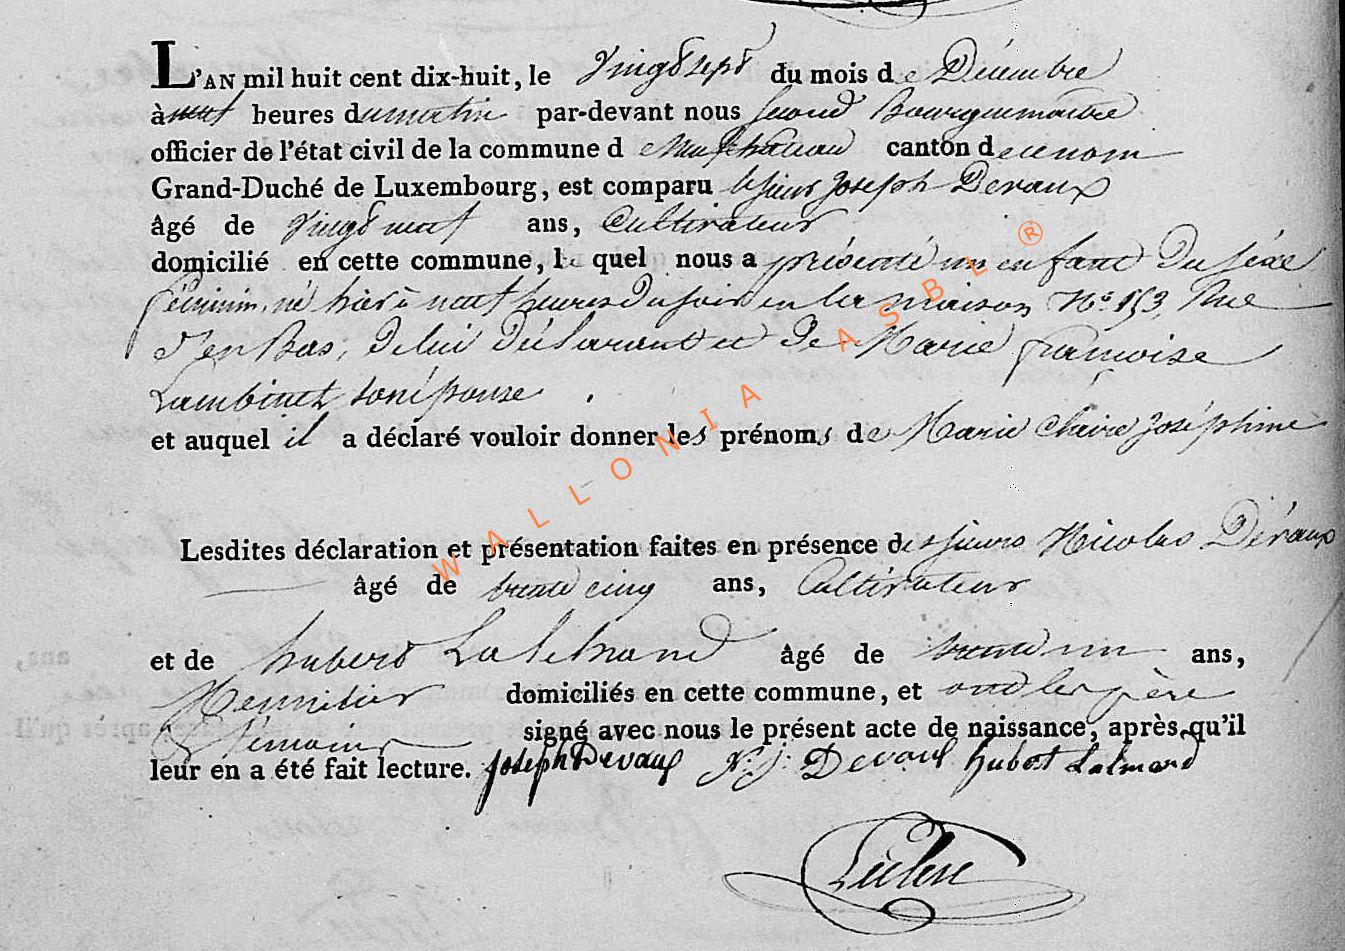 L'AN mil huit cent dix-huit, le Vingt sept du mois de Décembre
à neuf heures du matin par-devant nous second Bourguemaitre
officier de l'état civil de la commune de Neufchateau canton de ce nom
Grand-Duché de Luxembourg, est comparu le sieur Joseph Devaux
âgé de Vingt neuf ans, Cultivateur
domicilié en cette commune, le quel nous a présenté un enfant du séxe
féminin, né hier à neuf heures du soir en la maison N° 153 Rue
d'en Bas, de lui déclarant et de Marie françoise
Lambinet son épouse.
et auquel il a déclaré vouloir donner les prénoms de Marie Claire Joséphine
Lesdites déclaration et présentation faites en présence des sieurs Nicolas Dévaux
âgé de trente cinq ans, Cultivateur
et de hubert âgé de trente un ans,
Menuisier domiciliés en cette commune, et ont les père
& témoins signé avec nous le présent acte de naissance, après qu'il
leur en a été fait lecture. Joseph Devaux N: J: Devaux hubert Lalmand
WALLONIA ASBL ®